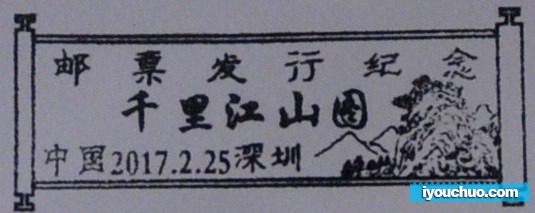 邮票发行纪念
千里江山图
中国2017.2.25深圳
iyouchuo.com